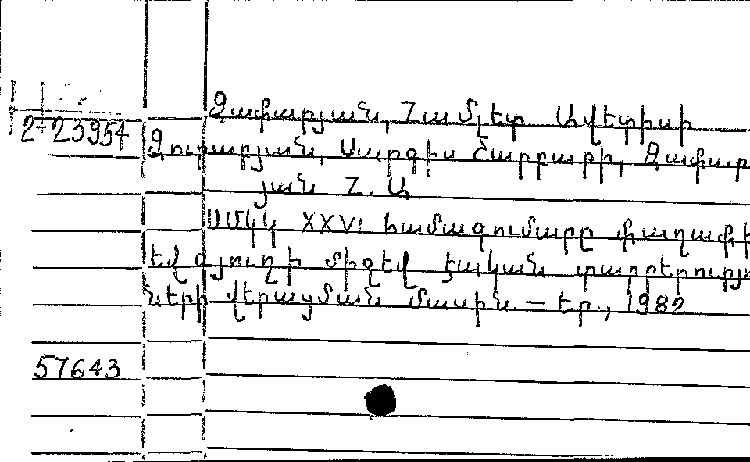 Զաքարյան, Համլետ Ավետիսի
2-23954
Զուրաբյան, Սարգիս Հարբարի, Զաքար
յան Հ. Ա
ՍՄԿԿ XXVI համագումարը քաղաքի
եվ գյուղի միջեվ էական տարբերությու
ների վերացման մասին. — Եր., 1982
57643